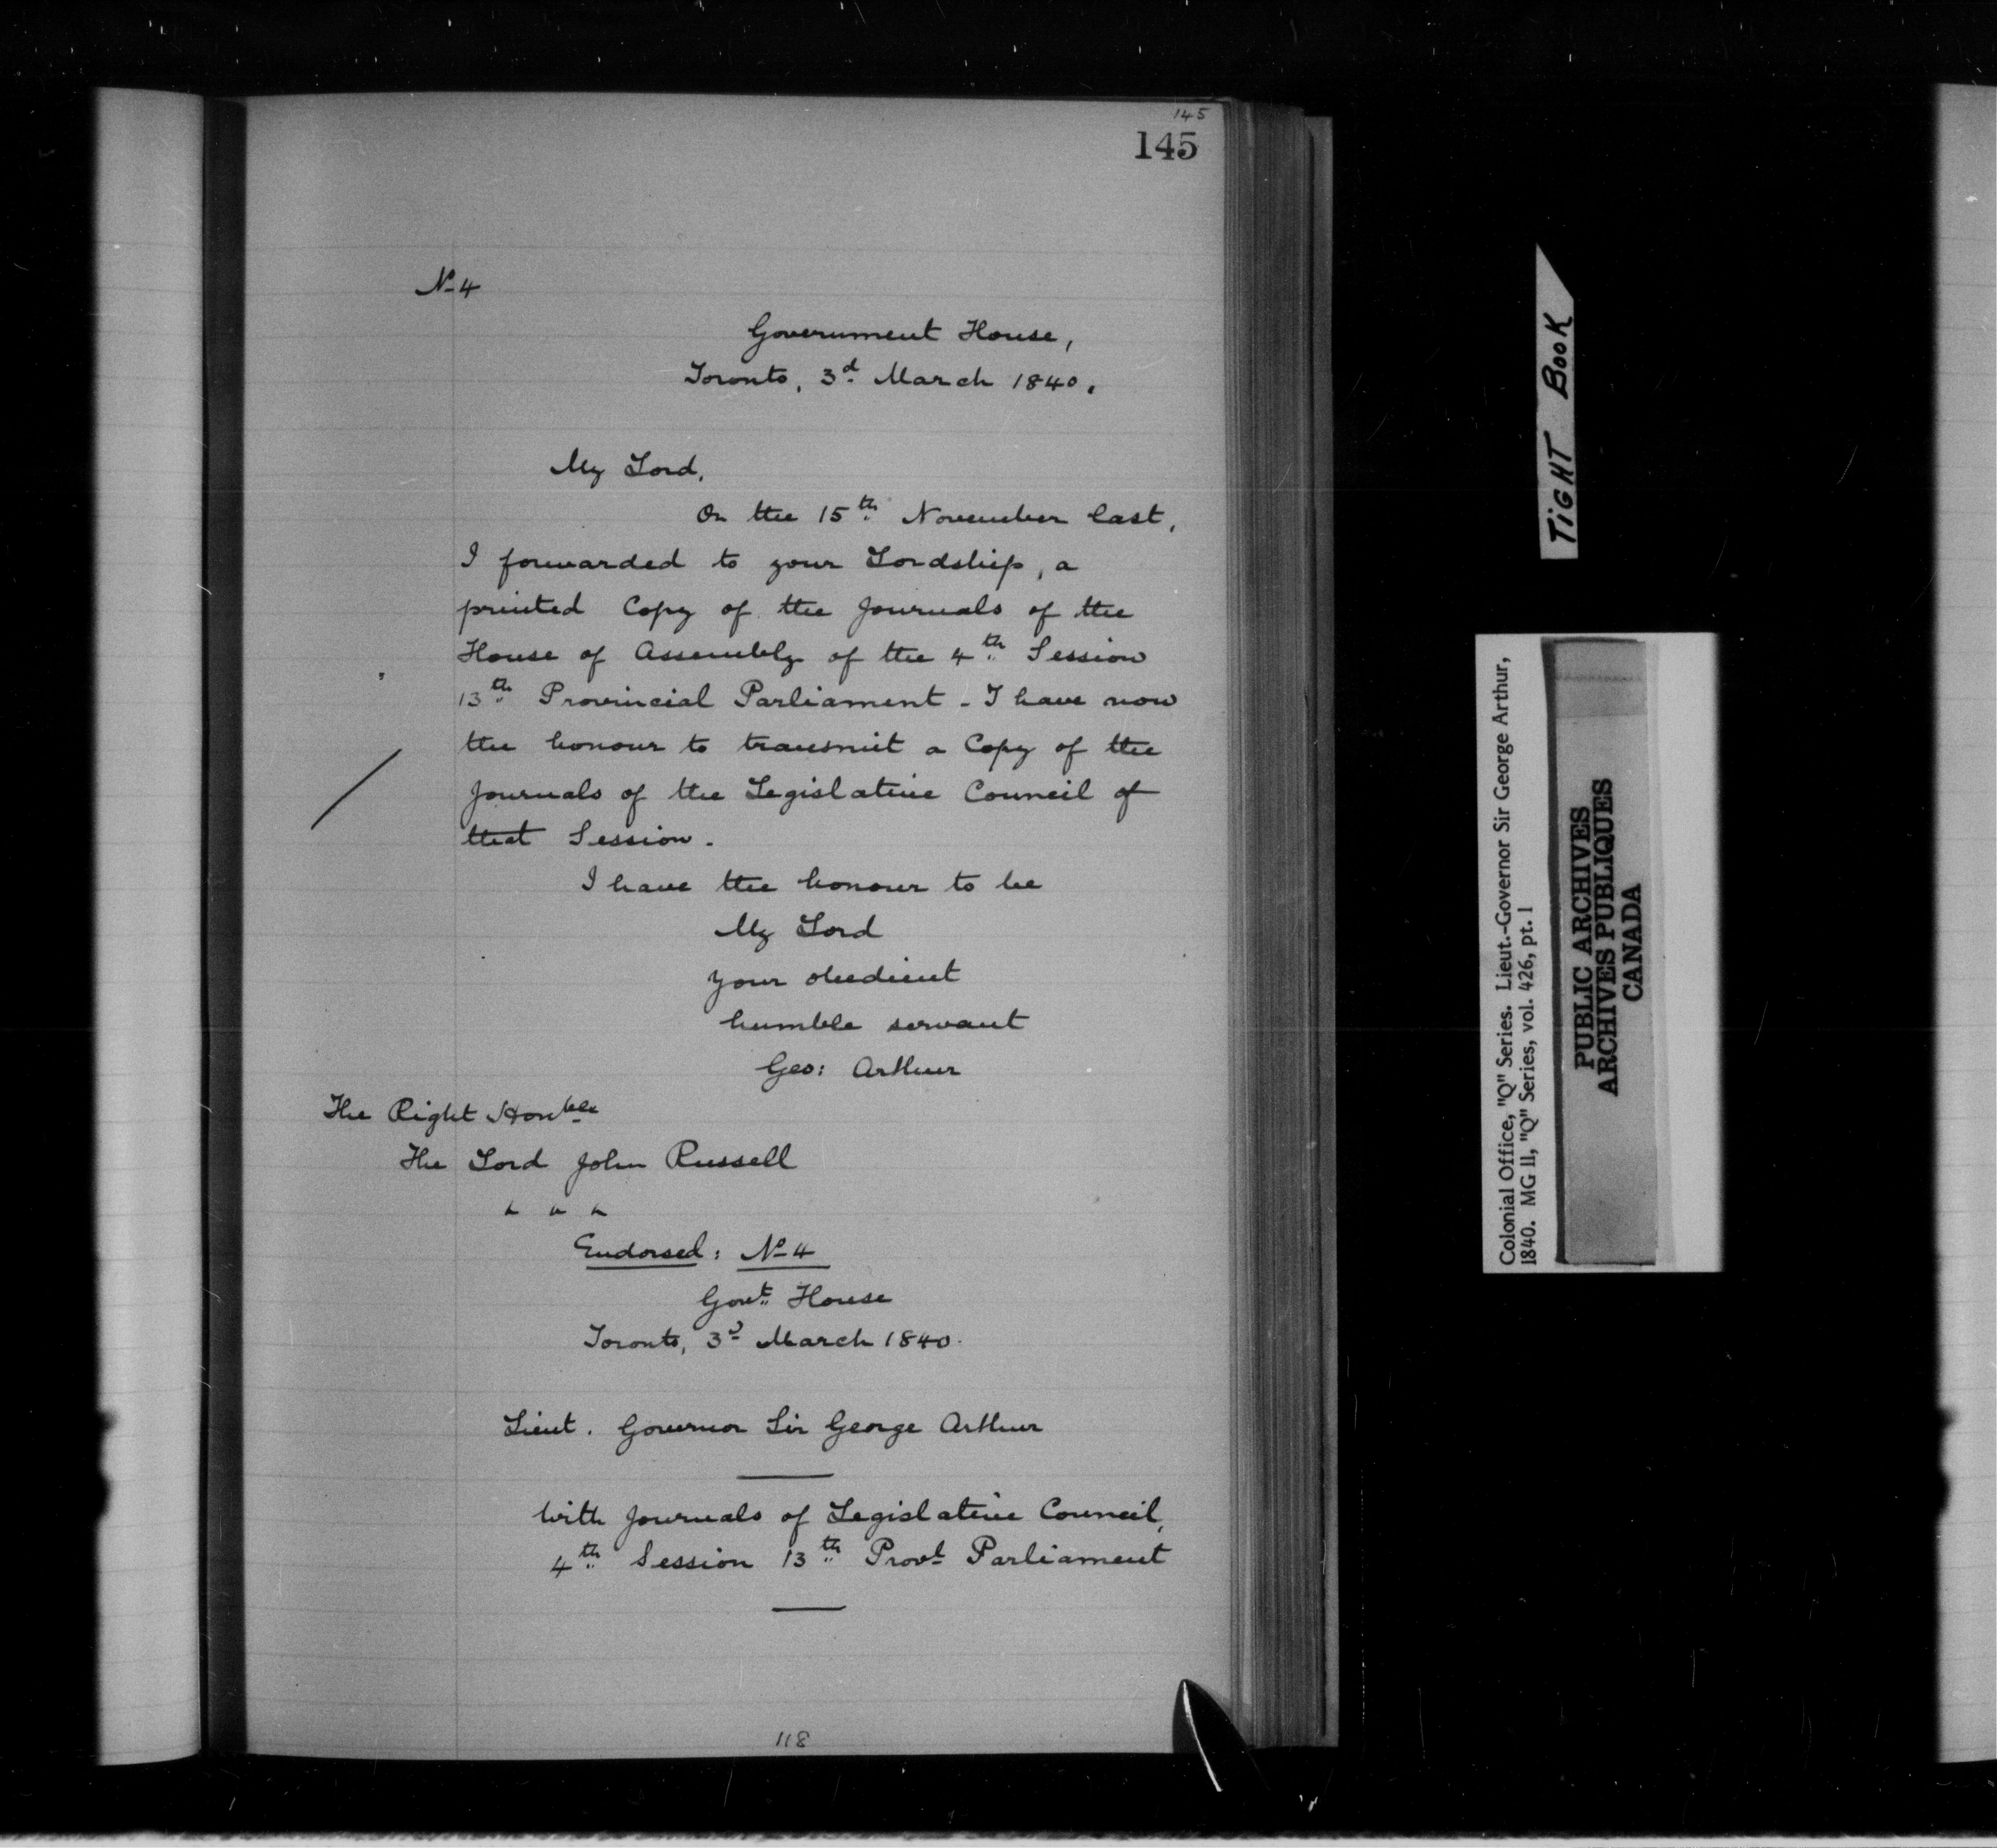 145
145
No 4
Government House,
Toronto, 3d March 1840.
My Lord,
On the 15th November last,
I forwarded to your Lordship, a
printed Copy of the Journals of the
House of Assembly of the 4th Session
13th Provincial Parliament - I have now
the honour to transmit a Copy of the
Journals of the Legislative Council of
that Session.
I have the honour to be
My Lord
your obedient
humble servant
Geo: Arthur
The Right Honble
The Lord John Russell
" " "
Endorsed: No 4
Govt House
Toronto, 3d March 1840.
Lieut. Governor Sir George Arthur
With Journals of Legislative Council,
4th Session 13th Provl Parliament
118
TIGHT BOOK
Colonial Office, "Q" Series. Lieut.-Governor Sir George Arthur,
1840. MG 11, "Q" Series, vol. 426, pt. 1
PUBLIC ARCHIVES
ARCHIVES PUBLIQUES
CANADA